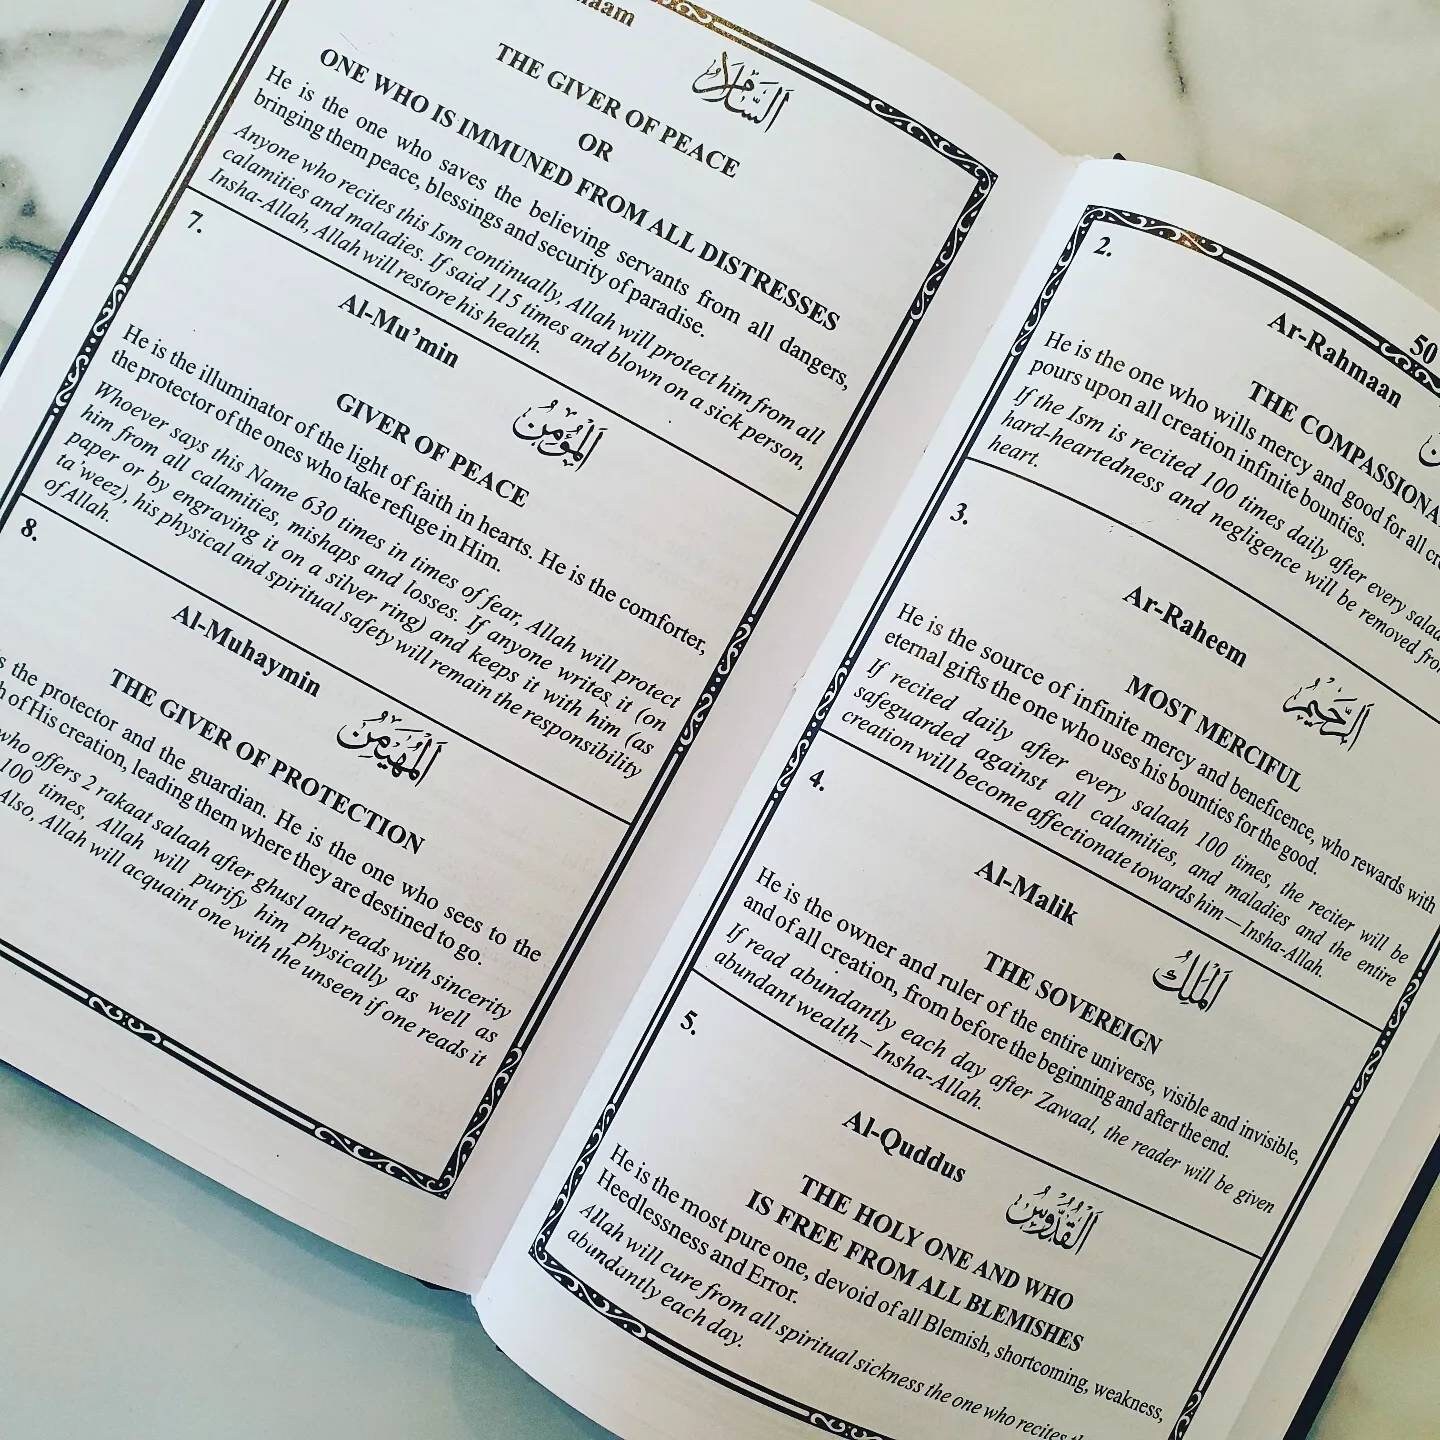 50
2.
Ar-Rahmaan
THE
He is the one who wills mercy and good for all
pours upon all creation infinite bounties.
If the Ism is recited 100 times daily after every
hard-heartedness and negligence will be removed
heart.
3.
Ar-Raheem
الرَّحِيْمُ
MOST MERCIFUL
He is the source of infinite mercy and beneficence, who rewards with
eternal gifts the one who uses his bounties for the good.
If recited daily after every salaah 100 times, the reciter will be
safeguarded against all calamities, and maladies and the entire
creation will become affectionate towards him—Insha-Allah.
4.
Al-Malik
اَلْمَلِكُ
THE SOVEREIGN
He is the owner and ruler of the entire universe, visible and invisible,
and of all creation, from before the beginning and after the end.
If read abundantly each day after Zawaal, the reader will be given
abundant wealth – Insha-Allah.
5.
Al-Quddus
اَلْقُدُّوْسُ
THE HOLY ONE AND WHO
IS FREE FROM ALL BLEMISHES
He is the most pure one, devoid of all Blemish, shortcoming, weakness,
Heedlessness and Error.
Allah will cure from all spiritual sickness the one who recites
abundantly each day.
السَّلَامُ
THE GIVER OF PEACE
OR
ONE WHO IS IMMUNED FROM ALL DISTRESSES
He is the one who saves the believing servants from all dangers,
bringing them peace, blessings and security of paradise.
Anyone who recites this Ism continually, Allah will protect him from all
calamities and maladies. If said 115 times and blown on a sick person,
Insha-Allah, Allah will restore his health.
7.
Al-Mu'min
اَلْمُؤْمِنُ
GIVER OF PEACE
He is the illuminator of the light of faith in hearts. He is the comforter,
the protector of the ones who take refuge in Him.
Whoever says this Name 630 times in times of fear, Allah will protect
him from all calamities, mishaps and losses. If anyone writes it (on
paper or by engraving it on a silver ring) and keeps it with him (as
ta'weez), his physical and spiritual safety will remain the responsibility
of Allah.
8.
Al-Muhaymin
اَلْمُهَيْمِنُ
THE GIVER OF PROTECTION
the protector and the guardian. He is the one who sees to the
of His creation, leading them where they are destined to go.
who offers 2 rakaat salaah after ghusl and reads with sincerity
100 times, Allah will purify him physically as well as
Also, Allah will acquaint one with the unseen if one reads it